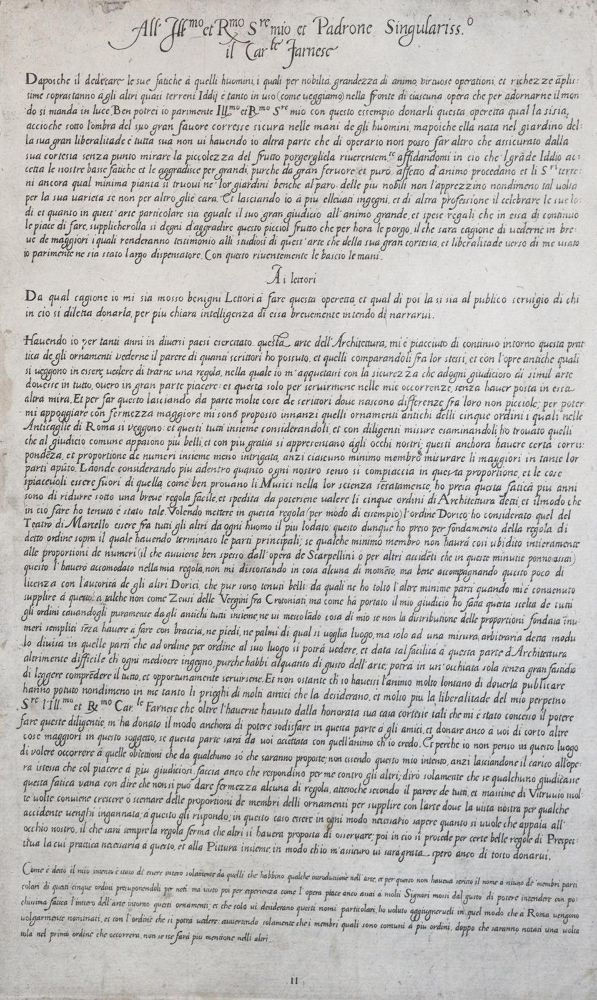 All' Ill.mo et R.mo S.re mio et Padrone Singulariss.o
il Car.le Farnese
Dapoiche il dedicare le sue fatiche à quelli huomini, i quali per nobiltà, grandezza di animo, virtuose operationi, et richezze àplis
sime soprastanno à gli altri quasi terreni Iddij è tanto in uso (come veggiamo) nella fronte di ciascuna opera che per adornarne il mon
do si manda in luce. Ben potrei io parimente Ill.mo et R.mo S.re mio con questo essempio donarli questa operetta qual la si sia,
accioche sotto l'ombra del suo gran favore corresse sicura nelle mani de gli huomini, ma poiche ella nata nel giardino del
la sua gran liberalità è tutta sua non vi havendo io altra parte che di operario non posso far altro che assicurato dalla
sua cortesia senza punto mirare la piccolezza del frutto porgergliela riverentem.te affidandomi in cio che l grāde Iddio ac
cetta le nostre basse fatiche et le aggradisce per grandi, purche da gran fervore, et puro affetto d'animo procedano et li S.ri terre
ni ancora qual minima pianta si truovi ne' lor giardini benche al paro delle piu nobili non l'apprezzino nondimeno tal volta
per la sua varietà se non per altro gliè cara. Et lasciando io à piu ellevati ingegni, et di altra professione il celebrare le sue lo
di et quanto in quest' arte particolare sia eguale il suo gran giudicio all'animo grande, et spese regali che in essa di continuo
le piace di fare, supplicherolla si degni d'aggradire questo picciol frutto che per hora le porgo, il che sarà cagione di vederne in bre
ve de maggiori i quali renderanno testimonio alli studiosi di quest' arte che della sua gran cortesia, et liberalità verso di me usato
io parimente ne sia stato largo dispensatore. Con questo riverentemente le bascio le mani.
Ai lettori
Da qual cagione io mi sia mosso benigni Lettori à fare questa operetta, et qual di poi la si sia al publico servigio di chi
in ciò si diletta donarla, per piu chiara intelligenza di essa brevemente intendo di narrarvi.
Havendo io per tanti anni in diversi paesi esercitato questa arte dell'Architettura, mi è piacciuto di continuo intorno questa prat
tica de gli ornamenti vederne il parere di quanti scrittori ho possuto, et quelli comparandoli fra lor stessi, et con l'opre antiche quali
si veggono in essere, vedere di trarne una regola, nella quale io m'acquetassi con la sicurezza che ad ogni giudicioso di simil arte
dovesse in tutto, overo in gran parte piacere: et questa solo per servirmene nelle mie occorrenze, senza haver posta in essa
altra mira. Et per far questo lasciando da parte molte cose de scrittori dove nascono differenze fra loro non picciole; per poter
mi appoggiare con fermezza maggiore mi sono proposto innanzi quelli ornamenti antichi delli cinque ordini i quali nelle
Anticaglie di Roma si veggono: et questi tutti insieme considerandoli, et con diligenti misure esaminandoli, ho trovato quelli
che al giudicio comune appaiono piu belli, et con piu gratia si appresentano agli occhi nostri; questi anchora havere certa corris
pondēza, et proportione de numeri insieme meno intrigata, anzi ciascuno minimo membro misurare li maggiori in tante lor
parti apūto. Laonde considerando piu adentro quanto ogni nostro senso si compiaccia in questa proportione, et le cose
spiacevoli essere fuori di quella, come ben provano li Musici nella lor scienza sensatamente; ho presa questa fatica piu anni
sono di ridurre sotto una breve regola facile, et spedita da potersene valere li cinque ordini di Architettura detti et il modo che
in cio fare ho tenuto è stato tale. Volendo mettere in questa regola (per modo di essempio) l'ordine Dorico, ho considerato quel del
Teatro di Marcello essere fra tutti gli altri da ogni huomo il piu lodato: questo dunque ho preso per fondamento della regola di
detto ordine, sopra il quale havendo terminato le parti principali, se qualche minimo membro non haurà cosi ubidito intieramente
alle proportioni de numeri (il che avviene ben spesso dall'opera de Scarpellini ò per altri accidēti che in queste minutie ponno assai)
questo l'haverò accomodato nella mia regola, non mi discostando in cosa alcuna di momēto, ma bene accompagnando questo poco di
licenza con l'autorità de gli altri Dorici, che pur sono tenuti belli: da quali ne ho tolto l'altre minime parti quando mi è convenuto
supplire à questo, a talche non come Zeusi delle Vergini fra Crotoniati ma come hà portato il mio giudicio ho fatta questa scelta de tutti
gli ordini cavandogli puramente da gli antichi tutti insieme ne vi mescolādo cosa di mio se non la distributione delle proportioni fondata ī nu
meri semplici sēza havere a fare con braccia, ne piedi, ne palmi di qual si voglia luogo, ma solo ad una misura arbitraria detta modu
lo divisa in quelle parti che ad ordine per ordine al suo luogo si potrà vedere, et data tal facilità à questa parte d'Architettura
altrimente difficile ch'ogni mediocre ingegno, purche habbi alquanto di gusto dell'arte, potrà in un'occhiata sola senza gran fastidio
di leggere comprēdere il tutto, et opportunamente servirsene. Et non ostante ch'io havessi l'animo molto lontano di doverla publicare
hanno potuto nondimeno in me tanto li prieghi di molti amici che la desiderano, et molto piu la liberalità del mio perpetuo
S.re l'Ill.mo et R.mo Car.le Farnese che oltre l'haverne havuto dalla honorata sua casa cortesie tali che mi è stato concesso il potere
fare queste diligentie, m'ha donato il modo anchora di potere sodisfare in questa parte a gli amici, et donare anco a voi di corto altre
cose maggiori in questo soggetto, se questa parte sarà da voi accettata con quell'animo ch'io credo. Et perche io non penso in questo luogo
di volere occorrere à quelle obiettioni che da qualchuno sò che saranno proposte, non essendo questo mio intento, anzi lasciandone il carico all'ope
ra istessa che col piacere a piu giudiciosi, faccia anco che rispondino per me contro gli altri; dirò solamente che se qualchuno giudicasse
questa fatica vana con dire che non si può dare fermezza alcuna di regola, atteso che secondo il parere de tutti, et massime di Vitruvio mol
te volte conviene crescere ò scemare delle proportioni de membri delli ornamenti per supplire con l'arte dove la vista nostra per qualche
accidente venghi ingannata, à questo gli rispondo, in questo caso essere in ogni modo necessario sapere quanto si vuole che appaia all'
occhio nostro, il che sarà sempre la regola ferma che altri si haverà proposta di osservare; poi in ciò si procede per certe belle regole di Prospet
tiva la cui prattica necessaria a questo, et alla Pittura insieme in modo ch'io m'assicuro vi sarà grata, spero anco di tosto donarvi.
Come è detto il mio intento è stato di essere inteso solamente da quelli che habbino qualche introduttione nell'arte, et per questo non haveva scritto il nome a niuno de' membri parti
colari di questi cinque ordini presuponendoli per noti: ma visto poi per esperienza come l'opera piace anco assai a molti Signori mossi dal gusto di potere intendere con po
chissima fatica l'intero dell'arte intorno questi ornamenti, et che solo vi desiderano questi nomi particolari, ho voluto aggiugnerveli in quel modo che a Roma vengono
volgarmente nominati, et con l'ordine che si potrà vedere: avvertendo solamente che i membri quali sono comuni a piu ordini, doppo che saranno notati una volta
sola nel primo ordine che occorrera, non se ne farà piu mentione nelli altri.
II